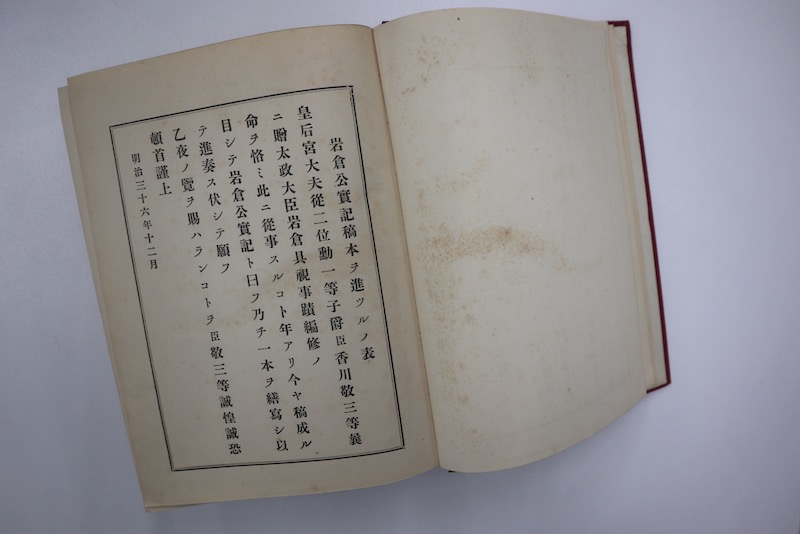 岩倉公實記稿本ヲ進ツルノ表
皇后宮大夫從二位勳一等子爵臣香川敬三等曩
ニ贈太政大臣岩倉具視事蹟編修ノ
命ヲ恪ミ此ニ從事スルコト年アリ今ヤ稿成ル
目シテ岩倉公實記ト曰フ乃チ一本ヲ繕寫シ以
テ進奏ス伏シテ願フ
乙夜ノ覽ヲ賜ハランコトヲ臣敬三等誠惶誠恐
頓首謹上
明治三十六年十二月